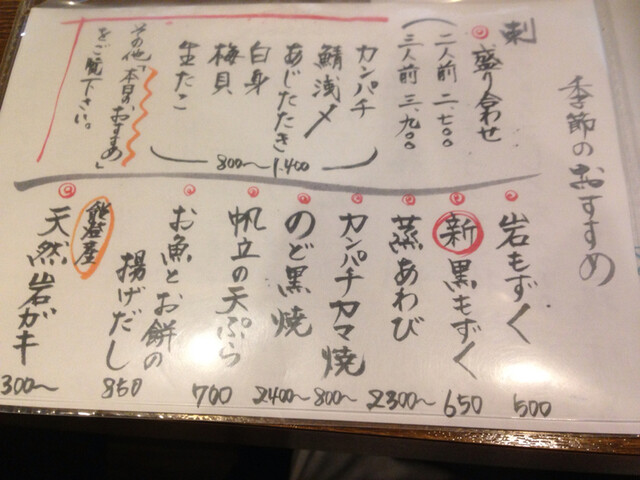 季節のおすすめ
刺
盛り合わせ
二人前 二、七〇〇
三人前 三、九〇〇
カンパチ
鯖浅〆
あじたたき
白身
梅貝
生たこ
800〜1,400
その他「本日のおすすめ」
をご覧下さい。
岩もずく 500
新 黒もずく 650
蒸あわび 2300〜
カンパチカマ焼 800〜
のど黒焼 2400〜
帆立の天ぷら 700
お魚とお餅の
揚げだし 850
能登産
天然岩ガキ 300〜